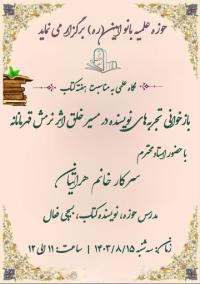 حوزه علمیه بانو امین(ره) برگزار می نماید
نگاه علمی به مناسبت هفته کتاب
بازخوانی تجربه های نویسنده در مسیر خلق اثر نرمش قهرمانانه
با حضور استاد محترم
سرکار خانم هراتیان
مدرس حوزه، نویسنده کتاب، بسیجی فعال
زمان: سه شنبه ۱۴۰۳/۸/۱۵ | ساعت: ۱۱ الی ۱۲